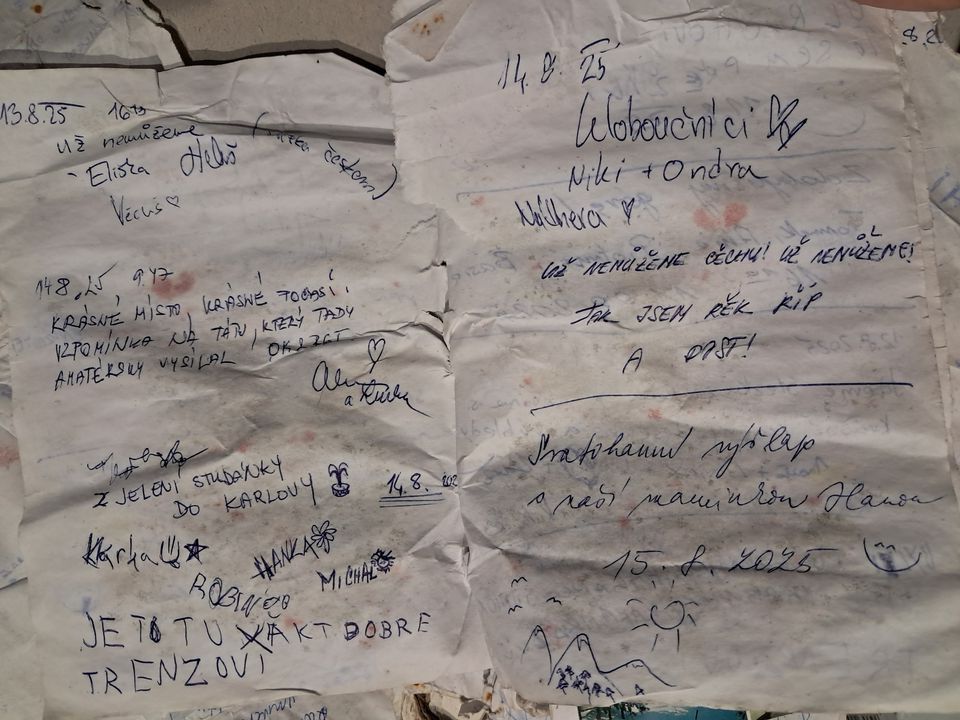 13.8.25 16
UŽ nemůžeme
Eliška
Věruš
14.8.25 9.47
KRÁSNÉ MÍSTO, KRÁSNÉ POČASÍ,
VZPOMÍNKA NA TÁTU, KTERÝ TADY
AMATÉRSKY VYSÍLAL
a
Z JELENÍ STUDÁNKY
DO KARLOVY
14.8.
HANKA
MICHAL
JE TO TU FAKT DOBRE
TRENZOVI
14.8.25
Kloboučníci
Niki + Ondra
Nádhera
UŽ NEMŮŽEME ČECHU! UŽ NEMŮŽEME!
TAK JSEM ŘEK ŘÍP
A DOST!
Svatohanní výšlap
s naší maminkou Hanou
15.8.2025